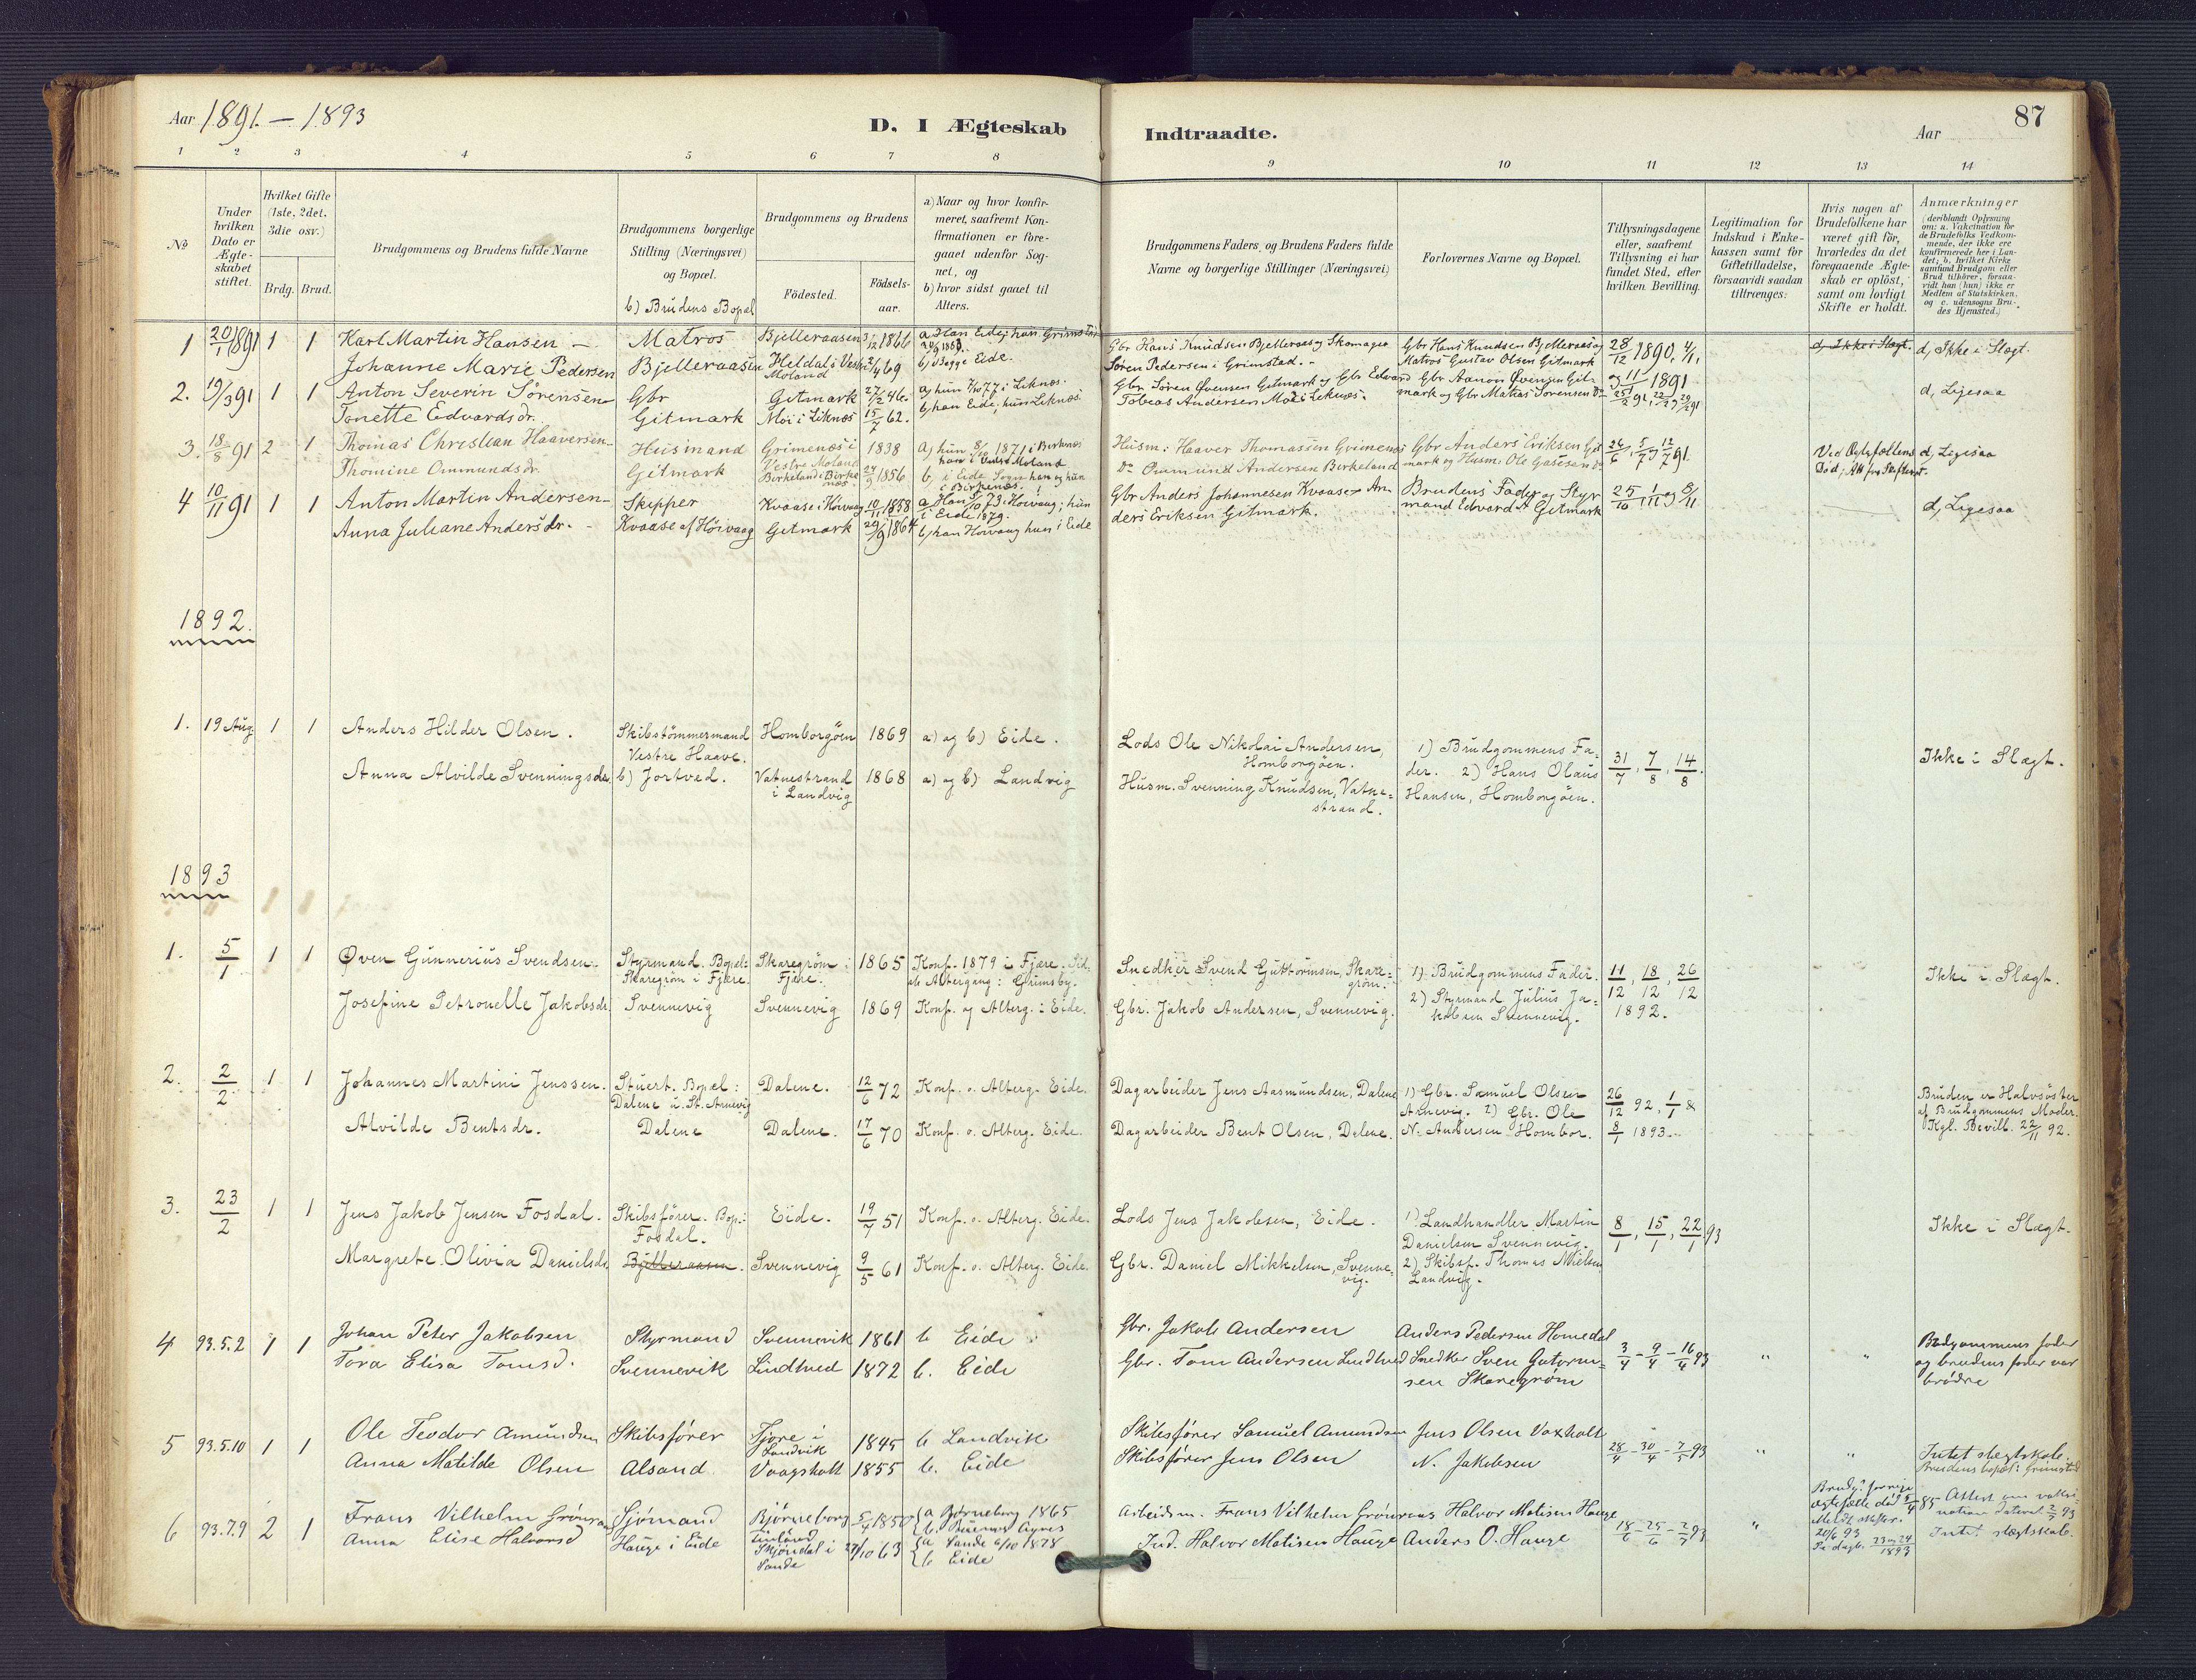 Aar 1891 — 1893
D. I Ægteskab
Indtraadte.
Aar
87
1 2 3 4 5 6 7 8 9 10 11 12 13 14
No
Under hvilken Dato er Ægteskabet stiftet.
Hvilket Gifte (1ste, 2det, 3die osv.)
Brdg. Brud.
Brudgommens og Brudens fulde Navne
Brudgommens borgerlige Stilling (Næringsvei) og Bopæl.
b) Brudens Bopæl
Brudgommens og Brudens
Födested.
Födselsaar.
a) Naar og hvor konfirmeret, saafremt Konfirmationen er foregaaet udenfor Sognet, og
b) hvor sidst gaaet til Alters.
Brudgommens Faders og Brudens Faders fulde Navne og borgerlige Stillinger (Næringsvei)
Forlovernes Navne og Bopæl.
Tillysningsdagene eller, saafremt Tillysning ei har fundet Sted, efter hvilken Bevilling.
Legitimation for Indskud i Enkekassen samt for Giftetilladelse, forsaavidt saadan tiltrænges:
Hvis nogen af Brudefolkene har været gift för, hvorledes da det foregaaende Ægteskab er oplöst, samt om lovligt Skifte er holdt.
Anmærkninger
(deriblandt Oplysning om: a. Vakcination for de Brudefolks Vedkommende, der ikke ere konfirmerede her i Landet; b. hvilket Kirkesamfund Brudgom eller Brud tilhörer, forsaavidt han (hun) ikke er Medlem af Statskirken, og c. udensogns Brudes Hjemsted.)
1 20/1 1891 1 1 Karl Martin Hansen — Matros Bjelleraasen 3/12 1866 a, Han Eide; hun Grimstad Gbr Hans Knudsen Bjelleraas og Skomager Gbr Hans Knudsen Bjelleraas og 28/12 1890, 4/1, d, Ikke i Slægt. d, Ikke i Slægt.
Johanne Marie Pedersen Bjelleraasen Heldal i Vestre Moland 2/4 69 b, Begge Eide. Søren Pedersen i Grimstad. Matros Gustav Olsen Gitmark og 11/1 1891
2. 19/3 91 1 1 Anton Severin Sørensen Gbr Gitmark 27/2 46. a, hun 7/10 77 i Liknes. Gbr Søren Øvensen Gitmark og Gbr Edvard Gbr Aanon Øvensen Gitmark og Gbr Matias Sørensen Do 25/2 91, 22/2 og 29/2 91 d, Ligesaa
Tonette Edvardsdr. Gitmark Moi i Liknes 15/7 62. b, han Eide; hun Liknes. Tobias Andersen Moi i Liknes.
3. 18/8 91 2 1 Thomas Christian Haaversen Husmand Grimenes i Vestre Moland 1838 a, hun 8/10 1871 i Birkenes han i Vestre Moland Husm: Haaver Thomasen Grimenes Gbr Anders Eriksen Gitmark og Husm: Ole Gabesen Do 26/6, 5/7 og 12/7 91. Ved Ægtefællens Død; Att fra Skifteret. d, Ligesaa
Thomine Ommundsdr. Gitmark Birkeland i Birkenes 24/9 1856 b, i Eide Sogn han og hun i Birkenes. Do Ommund Andersen Birkeland
4 10/11 91 1 1 Anton Martin Andersen Skipper Kvaase i Høivaag 10/11 1858 a, Han 5/10 73 i Høivaag; hun i Eide 1879. Gbr Anders Johannesen Kvaase Anders Eriksen Gitmark. Brudens Fader og Styrmand Edvard A Gitmark 25/10, 1/11 og 8/11 d, Ligesaa
Anna Juliane Andersdr. Kvaase af Höivaag Gitmark 29/9 1864 b, han Høivaag hun i Eide
1892.
1. 19 Aug. 1 1 Anders Hilder Olsen. Skibstömmermand Vestre Haave. Homborgöen 1869 a) og b) Eide. Lods Ole Nikolai Andersen, Homborgöen. 1) Brudgommens Fader. 2) Hans Olaus Hansen, Homborgöen. 31/7, 7/8, 14/8. Ikke i Slægt.
Anna Alvilde Svenningsdr. b) Jortved. Vatnestrand i Landvig 1868 a) og b) Landvig Husm. Svenning Knudsen, Vatnestrand.
1893
1. 5/1 1 1 Øven Gunnerius Svendsen. Styrmand. Bopæl: Skaregröm i Fjære. Skaregröm i Fjære. 1865 Konf. 1879 i Fjære. Sidste Altergang: Grimsby. Snedker Svend Guttormsen, Skaregröm. 1) Brudgommens Fader. 2) Styrmand Julius Jakobsen Svennevig. 11/12, 18/12, 26/12 1892. Ikke i Slægt.
Josefine Petronelle Jakobsdr. Svennevig Svennevig 1869 Konf. og Alterg. i Eide. Gbr. Jakob Andersen, Svennevig.
2. 2/2 1 1 Johannes Martini Jenssen. Stuert. Bopæl: Dalene u. St. Arnevig Dalene. 12/6 72 Konf. o. Alterg. Eide. Dagarbeider Jens Aasmundsen, Dalene 1) Gbr. Samuel Olsen Arnevig. 2) Gbr. Ole N. Andersen Hombor. 26/12 92, 1/1 & 8/1 1893. Bruden er Halvsöster af Brudgommens Moder. Kgl. Bevill. 22/11 92.
Alvilde Bentsdr. Dalene Dalene. 17/6 70 Konf. o. Alterg. Eide. Dagarbeider Bent Olsen, Dalene.
3. 23/2 1 1 Jens Jakob Jensen Fosdal. Skibsförer. Bop: Fosdal. Eide. 19/7 51 Konf. o. Alterg. Eide. Lods Jens Jakobsen, Eide. 1) Landhandler Martin Danielsen Svennevig. 2) Skibsf. Thomas Nielsen Landvig. 8/1, 15/1, 22/1 93 Ikke i Slægt.
Margrete Olivia Danielsdr. Bjelleraasen. Svennevig 9/5 61 Konf. o. Alterg. Eide. Gbr. Daniel Mikkelsen, Svennevig.
4 93.5.2 1 1 Johan Peter Jakobsen Styrmand Svennevik 1861 b Eide Gbr. Jakob Andersen Anders Pedersen Homedal 3/4 - 9/4 - 16/4 93 " " Brudgommens fader og brudens fader var brødre
Tora Elisa Tomsd. Svennevik Lindtved 1872 b. Eide Gbr. Tom Andersen Lindtved Snedker Sven Gutormsen Skaregrøm
5 93.5.10 1 1 Ole Teodor Amundsen Skibsfører Tjore i Landvik 1845 b Landvik Skibsfører Samuel Amundsen Jens Olsen Vaxholt 28/4 - 30/4 - 7/5 93 " " Intet slægtskab. Brudens bopæl: Grimstad
Anna Matilde Olsen Alsand Vaagsholt 1855 b. Eide Skibsfører Jens Olsen N. Jakobsen
6 93.7.9 2 1 Frans Vilhelm Grönroos Sjømand Bjørneborg Finland 5/4 1850 a Bjørneborg 1865 b. Buenos Ayres Arbeidsm. Frans Vilhelm Grönroos Halvor Matisen Hauge 18/6 - 25/6 - 2/7 93 " Brudg. forrige ægtefælle død 5/4 85 - Attest om vaksination dateret 2/7 93
Anna Elise Halvorsd Hauge i Eide Skjöndal i Sande 27/10 63 a Sande 6/10 1878 b Eide Ind. Halvor Matisen Hauge Anders O. Hauge 20/6 93 Intet slægtskab.